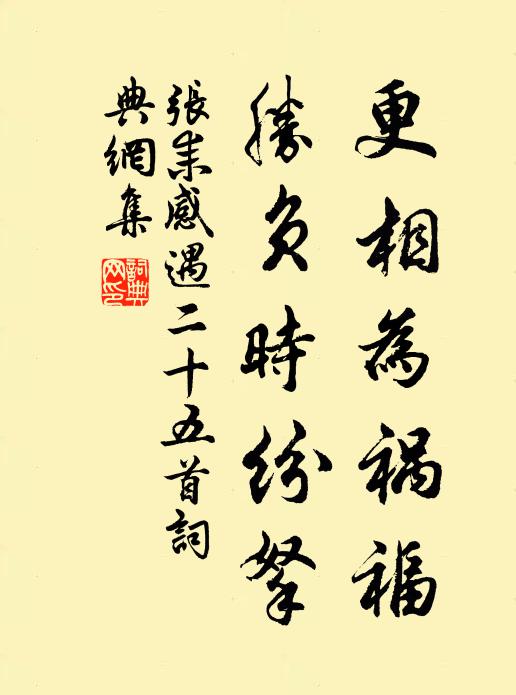 更相為禍福
勝負時紛拏
張耒感遇二十五首詞
典網集
詞典
网印